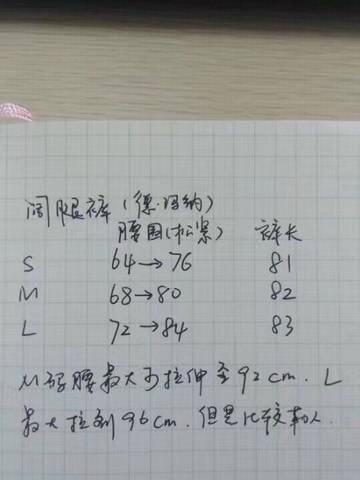 阔腿裤（德·玛纳）
腰围(松紧) 裤长
S 64→76 81
M 68→80 82
L 72→84 83
M码腰最大可拉伸至92cm. L
最大拉到96cm. 但是比较勒人.